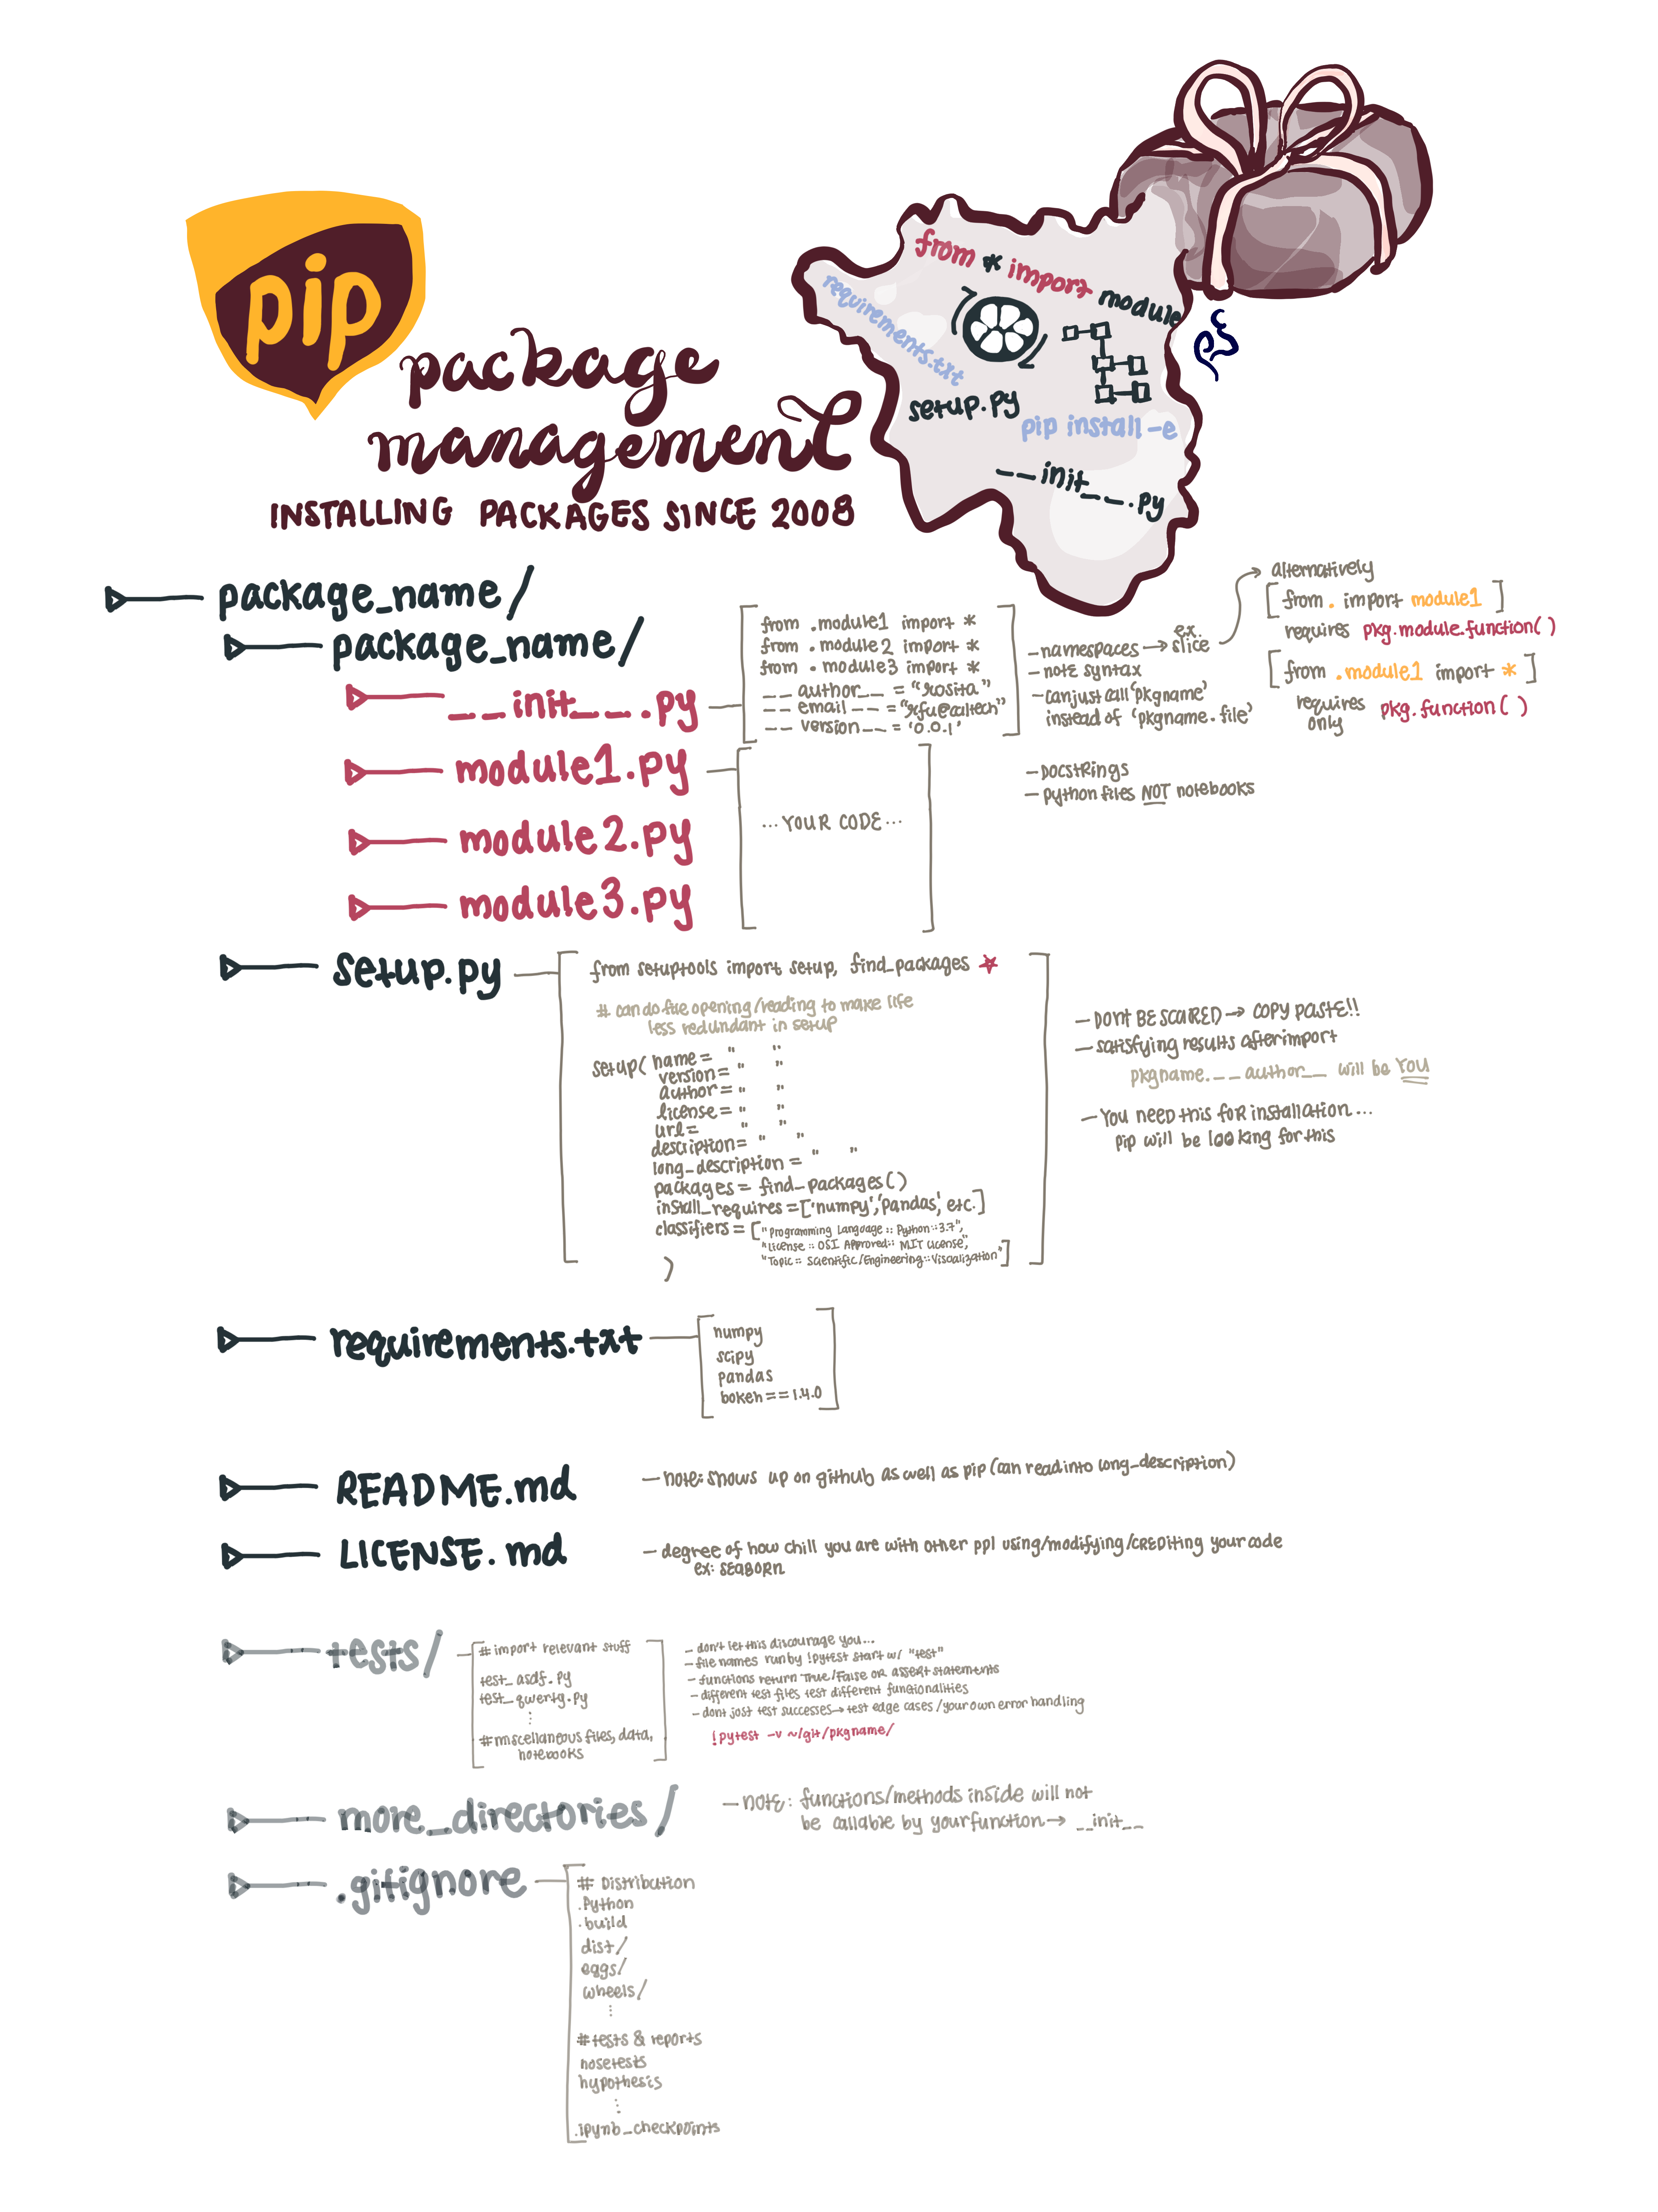 pip
package
management
INSTALLING PACKAGES SINCE 2008
from * import module
requirements.txt
setup.py
pip install -e
__init__.py
package_name/
package_name/
__init__.py
from .module1 import *
from .module2 import *
from .module3 import *
__author__ = "rosita"
__email__ = "rfu@caltech"
__version__ = '0.0.1'
- namespaces → ex. slice
- note syntax
- can just call 'pkgname'
instead of 'pkgname.file'
alternatively
[from . import module1]
requires pkg.module.function()
[from .module1 import *]
requires only pkg.function()
module1.py
... YOUR CODE ...
- DOCSTRINGS
- python files NOT notebooks
module2.py
module3.py
setup.py
from setuptools import setup, find_packages ☆
# can do file opening/reading to make life
less redundant in setup
setup( name = " "
version = " "
author = " "
license = " "
url = " "
description = " "
long_description = " "
packages = find_packages()
install_requires = ['numpy','pandas', etc.]
classifiers = ["Programming Language :: Python :: 3.7",
"License :: OSI Approved :: MIT License",
"Topic :: Scientific/Engineering :: Visualization"]
)
- DONT BE SCARED → COPY PASTE!!
- satisfying results after import
pkgname.__author__ will be YOU
- You need this for installation...
pip will be looking for this
requirements.txt
numpy
scipy
pandas
bokeh == 1.4.0
README.md
- note: shows up on github as well as pip (can read into long_description)
LICENSE.md
- degree of how chill you are with other ppl using/modifying/CREDITING your code
ex: SEABORN
tests/
# import relevant stuff
test_asdf.py
test_qwerty.py
⋮
# miscellaneous files, data,
notebooks
- don't let this discourage you...
- file names run by !pytest start w/ "test"
- functions return True/False or assert statements
- different test files test different functionalities
- dont just test successes → test edge cases/your own error handling
!pytest -v ~/git/pkgname/
more_directories/
- note: functions/methods inside will not
be callable by your function → __init__
.gitignore
# Distribution
.Python
.build
dist/
eggs/
wheels/
⋮
# tests & reports
nosetests
hypothesis
⋮
.ipynb_checkpoints